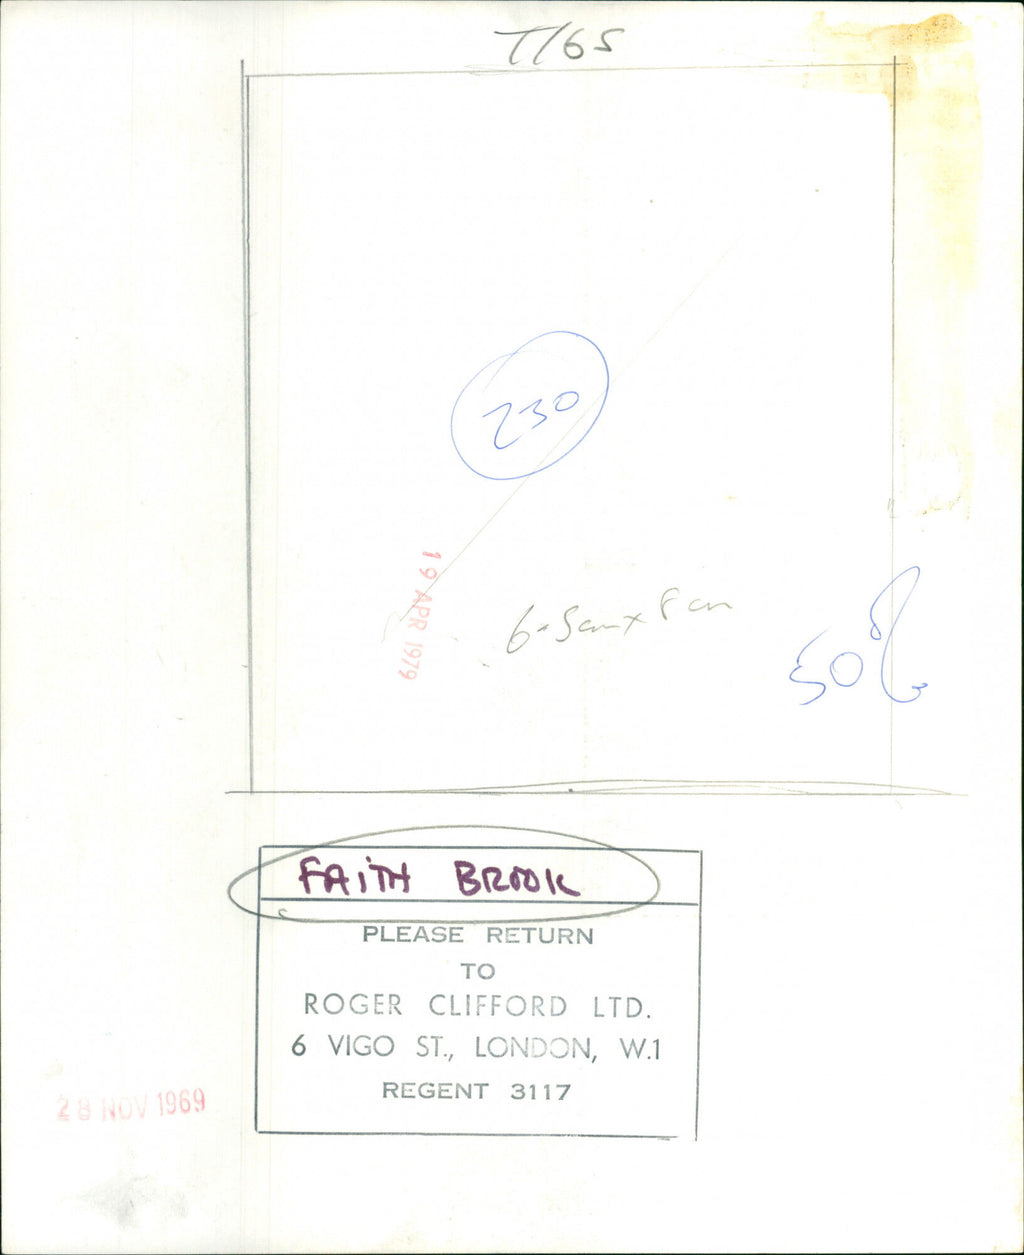 T/65
230
19 APR 1979
6.5cm x 8cm
50%
FAITH BROOK
PLEASE RETURN
TO
ROGER CLIFFORD LTD.
6 VIGO ST., LONDON, W.1
REGENT 3117
28 NOV 1969